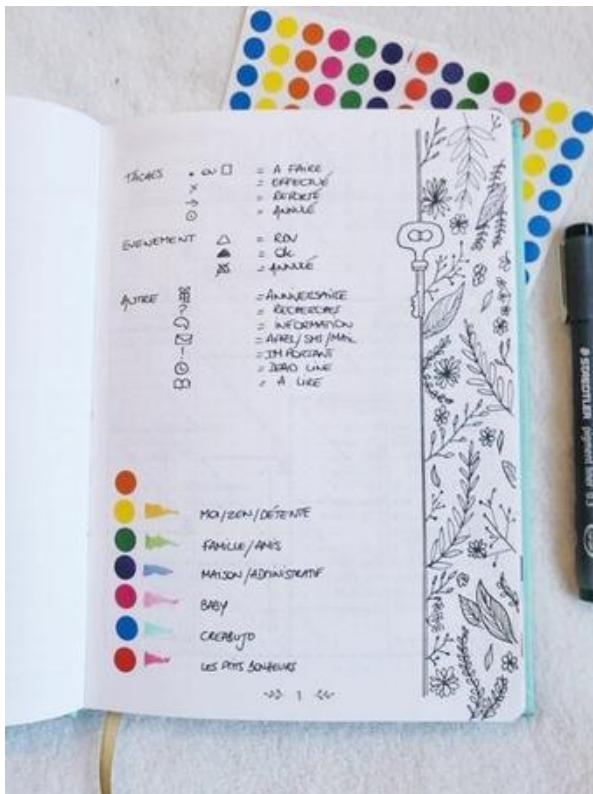 TÂCHES • ou □ = A FAIRE
× = EFFECTUÉ
→ = REPORTÉ
= ANNULÉ
EVENEMENT △ = RDV
▲ = OK
= ANNULÉ
AUTRE = ANNIVERSAIRE
? = RECHERCHES
= INFORMATION
= APPEL/SMS/MAIL
! = IMPORTANT
= DEAD LINE
= A LIRE
MOI/ZEN/DÉTENTE
FAMILLE/AMIS
MAISON/ADMINISTRATIF
BABY
CREABUJO
LES PTITS BONHEURS
1
STAEDTLER pigment liner 0.3